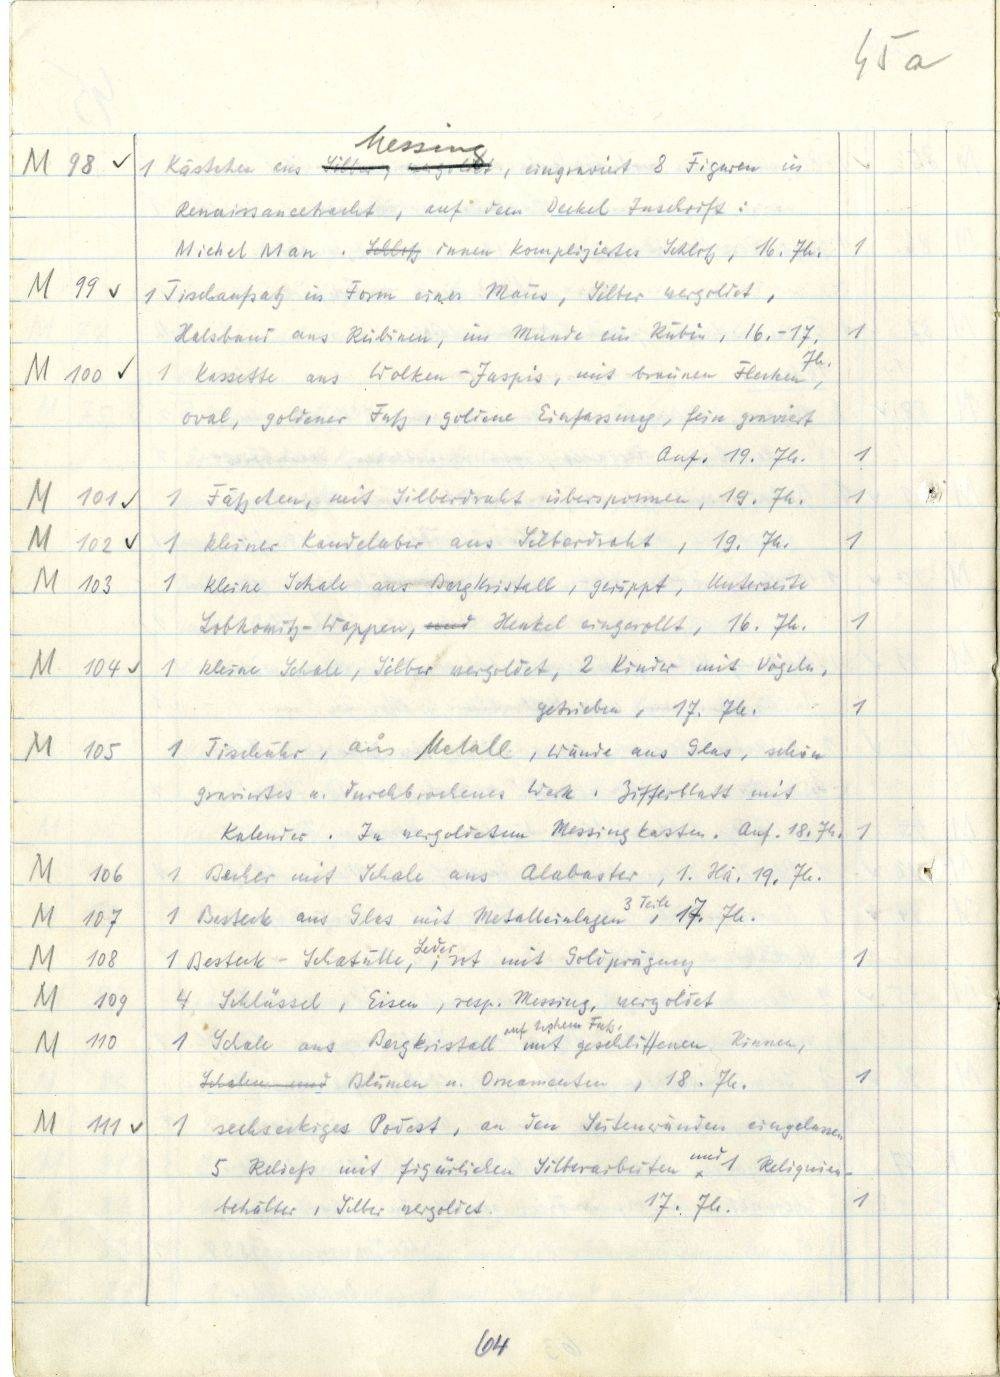 45a
M 98 ✓ 1 Kästchen aus ~~Silber, vergoldet~~ Messing, eingraviert 8 Figuren in
Renaissancetracht, auf dem Deckel Inschrift:
Michel Man. ~~Schloß~~ innen kompliziertes Schloß, 16. Jh. 1
M 99 ✓ 1 Tischaufsatz in Form einer Maus, Silber vergoldet,
Halsband aus Rubinen, im Munde ein Rubin, 16.-17. Jh. 1
M 100 ✓ 1 Kassette aus Wolken-Jaspis, mit braunen Flecken,
oval, goldener Fuß, goldene Einfassung, fein graviert
Anf. 19. Jh. 1
M 101 ✓ 1 Fäßchen, mit Silberdraht übersponnen, 19. Jh. 1
M 102 ✓ 1 kleiner Kandelaber aus Silberdraht, 19. Jh. 1
M 103 1 kleine Schale aus Bergkristall, gerippt, Unterseite
Lobkowitz-Wappen, ~~und~~ Henkel eingerollt, 16. Jh. 1
M 104 ✓ 1 kleine Schale, Silber vergoldet, 2 Kinder mit Vögeln,
getrieben, 17. Jh. 1
M 105 1 Tischuhr, aus Metall, Wände aus Glas, schön
graviertes u. durchbrochenes Werk. Zifferblatt mit
Kalender. In vergoldetem Messingkasten. Anf. 18. Jh. 1
M 106 1 Becher mit Schale aus Alabaster, 1. Hä. 19. Jh.
M 107 1 Besteck aus Glas mit Metalleinlagen 3 Teile, 17. Jh.
M 108 1 Besteck-Schatulle, Leder, rot mit Goldprägung 1
M 109 4 Schlüssel, Eisen, resp. Messing, vergoldet
M 110 1 Schale aus Bergkristall auf hohem Fuß, mit geschliffenen Rinnen,
~~Schalen und~~ Blumen u. Ornamenten, 18. Jh. 1
M 111 ✓ 1 sechseckiges Podest, an den Seitenwänden eingelassen
5 Reliefs mit figürlichen Silberarbeiten und 1 Reliquien-
behälter, Silber vergoldet. 17. Jh. 1
64